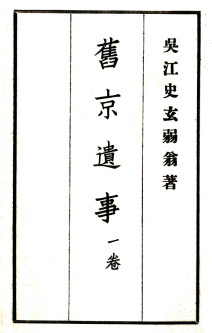 吳江史玄弱翁著
舊京遺事一卷